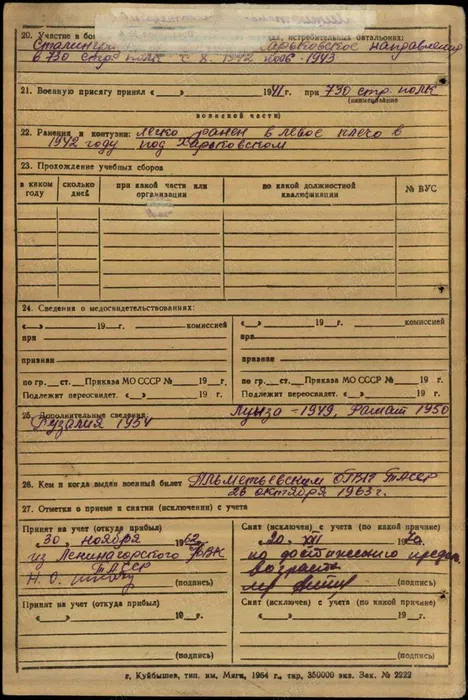 20. Участие в бо
ях, истребительных батальонах:
Сталингр
Харьковское направление
в 730 стр. полк с X. 1942 по 1943
21. Военную присягу принял «___» ______ 1941 г. при 730 стр. полк
(наименование
воинской части)
22. Ранения и контузии: легко ранен в левое плечо в
1942 году под Харьковском
23. Прохождение учебных сборов
в каком году
сколько дней
при какой части или организации
по какой должностной квалификации
№ ВУС
24. Сведения о медосвидетельствованиях:
«___» ______ 19 ___ г. ______ комиссией
«___» ______ 19 ___ г. ______ комиссией
при
при
признан
признан
по гр. ___ ст. ___ Приказа МО СССР № ___ 19 ___ г.
по гр. ___ ст. ___ Приказа МО СССР № ___ 19 ___ г.
Подлежит переосвидет. «___» ______ 19 ___ г.
Подлежит переосвидет. «___» ______ 19 ___ г.
25. Дополнительные сведения:
Луыза - 1949, Фамат 1950
Рузалия 1954
26. Кем и когда выдан военный билет Альметьевским ОГВК ТАССР
26 октября 1963 г.
27. Отметки о приеме и снятии (исключении) с учета
Принят на учет (откуда прибыл)
Снят (исключен) с учета (по какой причине)
«30» ноября 1962 г.
«20» XII
из Лениногорского РВК
по достижении предел.
ТАССР
возраста
Н. О.
(подпись)
(подпись)
Принят на учет (откуда прибыл)
Снят (исключен) с учета (по какой причине)
«___» ______ 19 ___ г.
«___» ______ 19 ___ г.
(подпись)
(подпись)
г. Куйбышев, тип. им. Мяги, 1964 г., тир. 350000 экз. Зак. № 2222